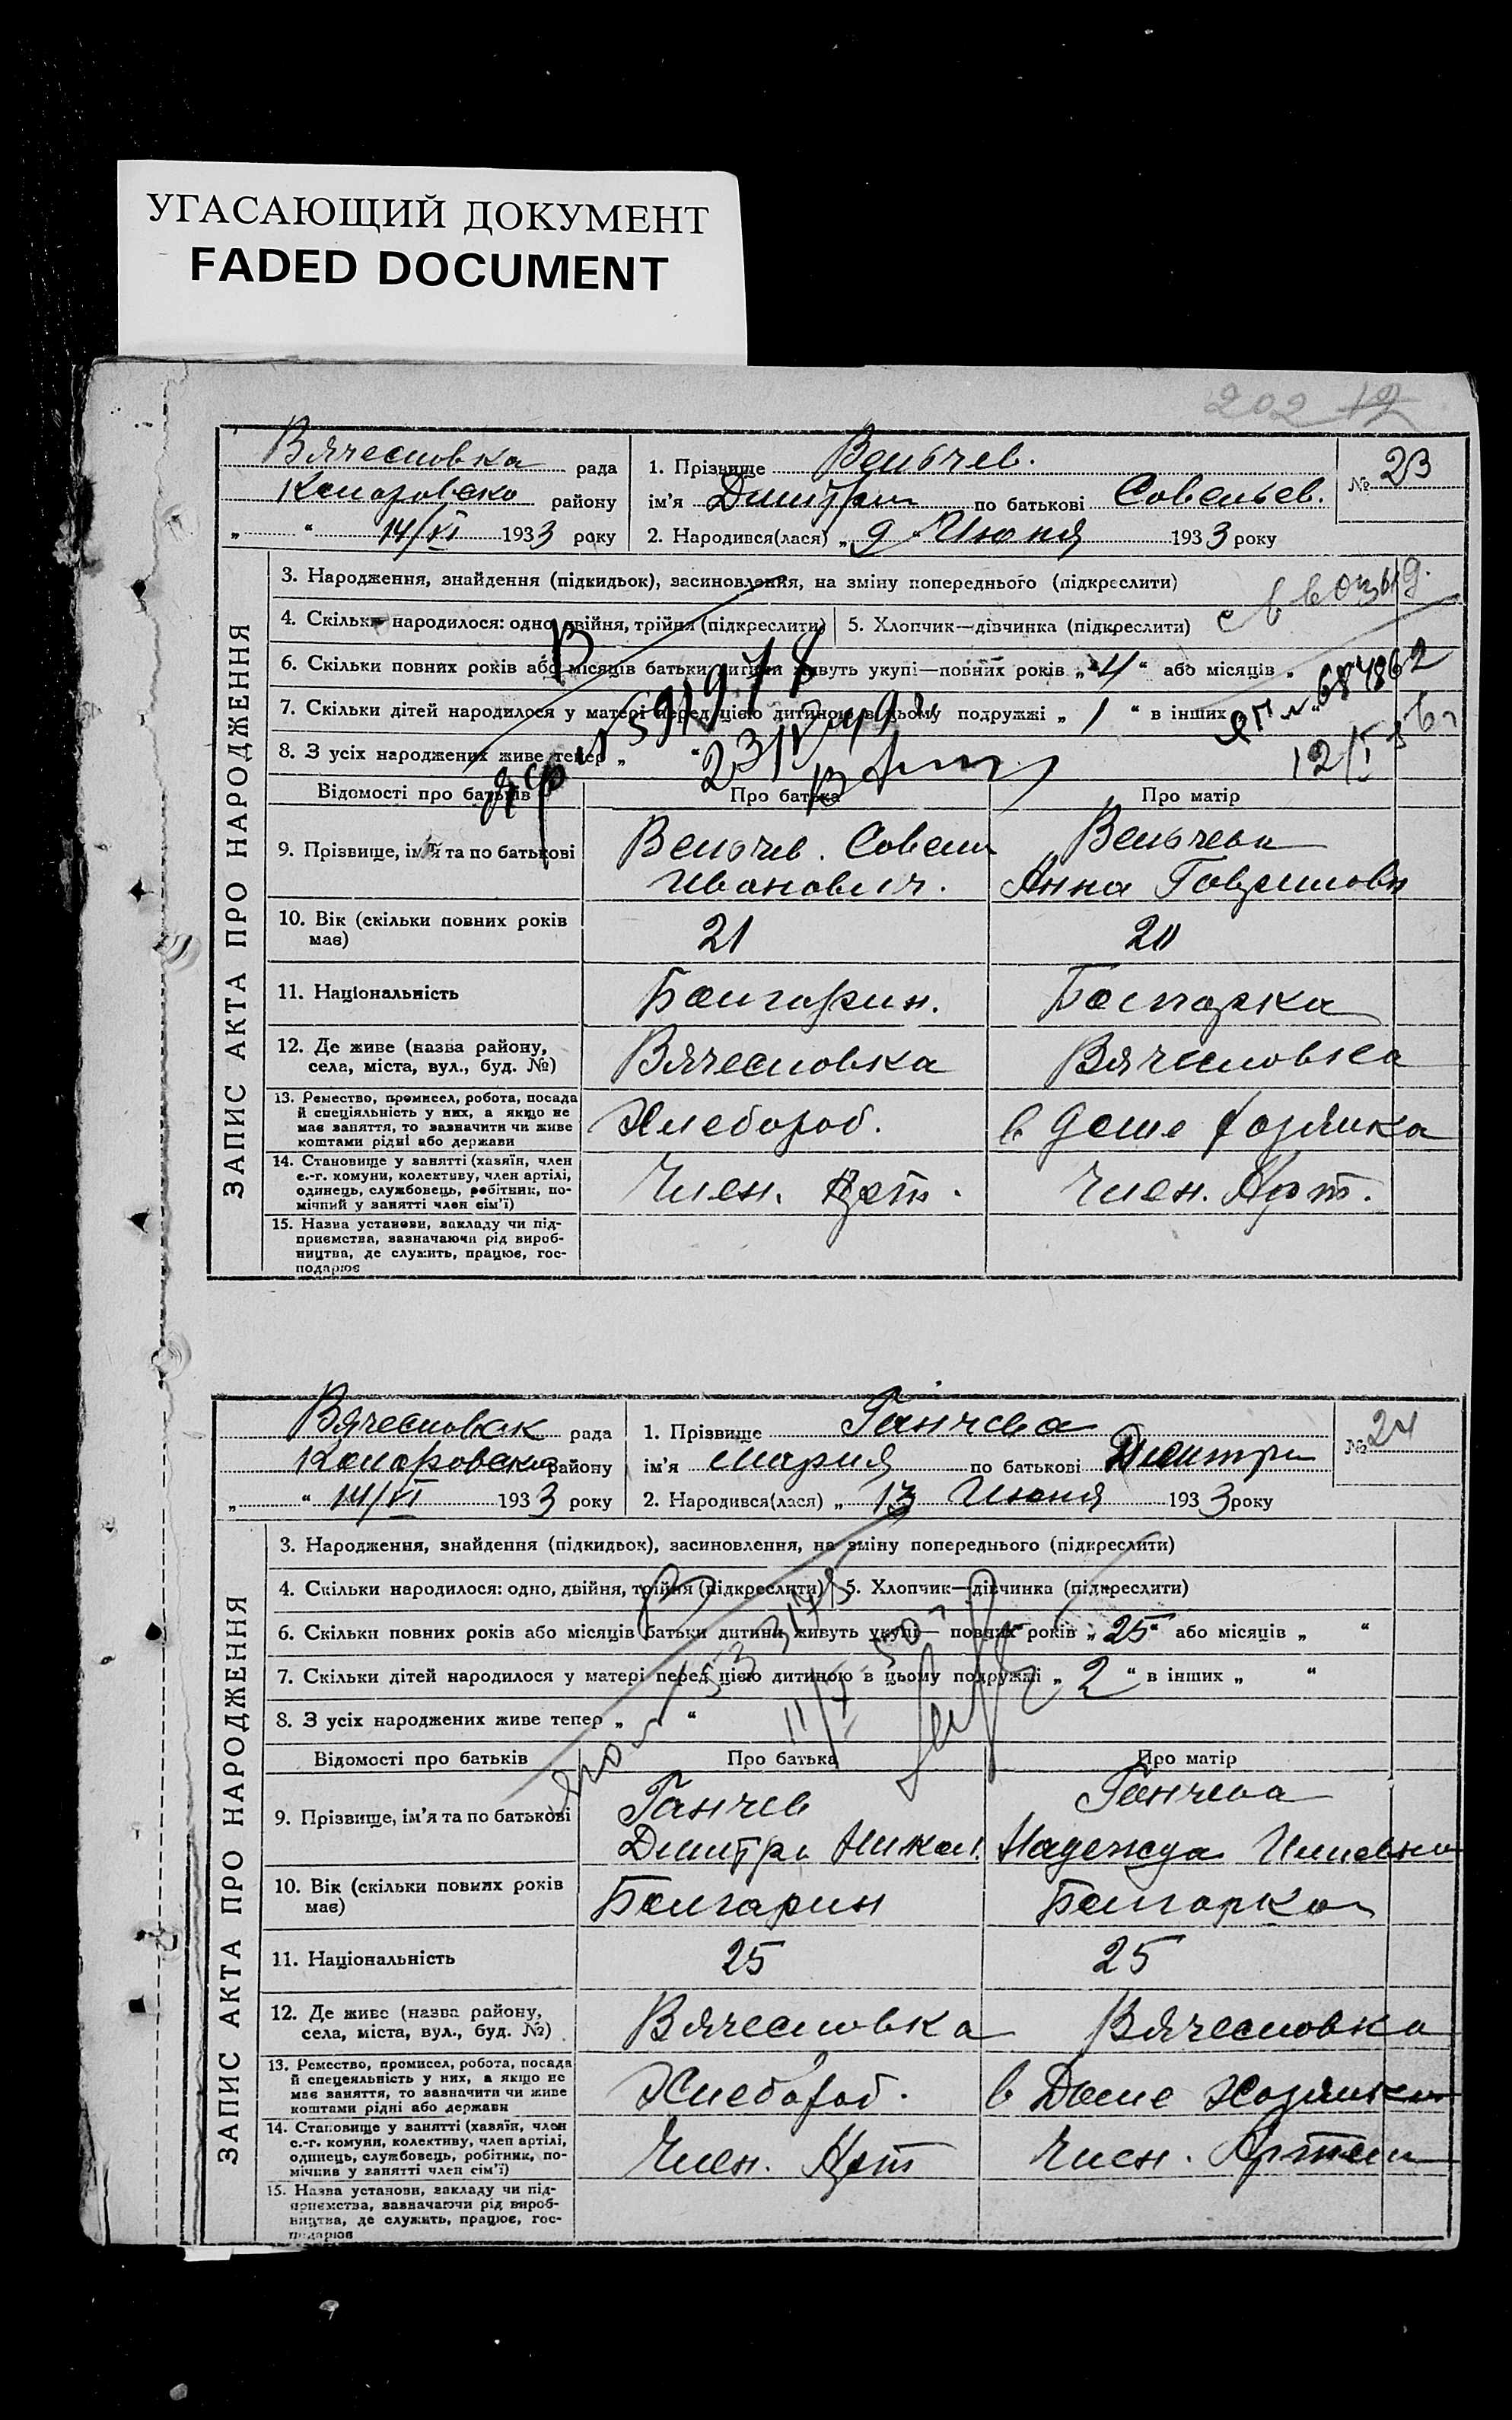 УГАСАЮЩИЙ ДОКУМЕНТ
FADED DOCUMENT
202 12
ЗАПИС АКТА ПРО НАРОДЖЕННЯ
Вячесловка рада
района
„ “ 14/VI 1933 року
1. Прізвище Вельчев.
ім'я Дмитрий по батькові Савельев.
2. Народився(лася) „ 9 “ Июня 1933 року
№ 23
3. Народження, знайдення (підкидьок), засиновлення, на зміну попереднього (підкреслити)
4. Скільки народилося: одно, двійня, трійня (підкреслити) 5. Хлопчик—дівчинка (підкреслити)
6. Скільки повних років або місяців батьки дитини живуть укупі—повних років „ 4 “ або місяців „
7. Скільки дітей народилося у матері перед цією дитиною в цьому подружжі „ 1 “ в інших
8. З усіх народжених живе тепер „ “
591978
684862
12/I
Відомості про батьків Про батька Про матір
9. Прізвище, ім'я та по батькові Вельчев. Савели Вельчева
Иванович. Анна Гавриловн
10. Вік (скільки повних років 21 20
має)
11. Національність Болгарин. Болгарка
12. Де живе (назва району, Вячесловка Вячесловка
села, міста, вул., буд. №)
13. Ремество, промисел, робота, посада Хлебороб. в доме хозяйка
й спеціяльність у них, а якщо не
має заняття, то зазначити чи живе
коштами рідні або держави
14. Становище у занятті (хазяїн, член Член. Арт. Член. Арт.
с.-г. комуни, колективу, член артілі,
одинець, службовець, робітник, по-
мічний у занятті член сім'ї)
15. Назва установи, закладу чи під-
приємства, зазначаючи рід вироб-
ництва, де служить, працює, гос-
подарює
ЗАПИС АКТА ПРО НАРОДЖЕННЯ
Вячесловск рада
району
„ “ 14/VI 1933 року
1. Прізвище Ганчева
ім'я Мария по батькові Дмитри
2. Народився(лася) „ 13 Июня 1933 року
№ 24
3. Народження, знайдення (підкидьок), засиновлення, на зміну попереднього (підкреслити)
4. Скільки народилося: одно, двійня, трійня (підкреслити) 5. Хлопчик—дівчинка (підкреслити)
6. Скільки повних років або місяців батьки дитини живуть укупі— повних років „ 25 “ або місяців „ “
7. Скільки дітей народилося у матері перед цією дитиною в цьому подружжі „ 2 “ в інших „ “
8. З усіх народжених живе тепер „ “
Відомості про батьків Про батька Про матір
9. Прізвище, ім'я та по батькові Ганчев Ганчева
Дмитри Никол. Надежда
10. Вік (скільки повних років Болгарин Болгарка
має)
11. Національність 25 25
12. Де живе (назва району, Вячесловка Вячесловка
села, міста, вул., буд. №)
13. Ремество, промисел, робота, посада Хлебороб. в Доме хозяйка
й спецеяльність у них, а якщо не
має заняття, то зазначити чи живе
коштами рідні або держави
14. Становище у занятті (хазяїн, член Член. Арт Член. Артели
с.-г. комуни, колективу, член артілі,
одинець, службовець, робітник, по-
мічник у занятті член сім'ї)
15. Назва установи, закладу чи під-
приємства, зазначаючи рід вироб-
ництва, де служить, працює, гос-
подарює